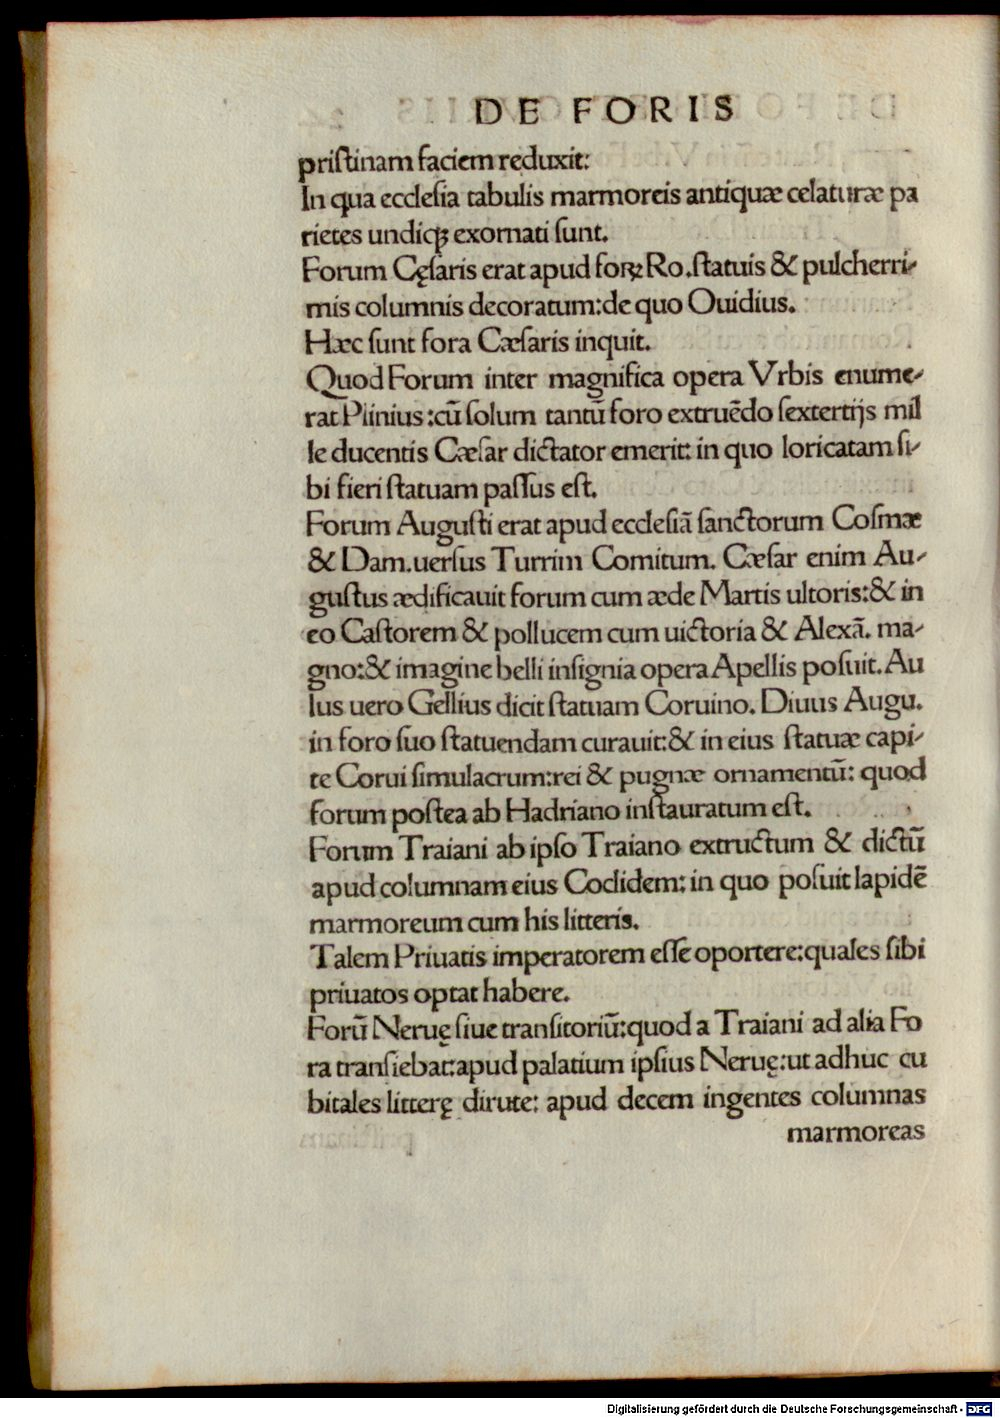 DE FORIS
priſtinam faciem reduxit:
In qua eccleſia tabulis marmoreis antiquæ celaturæ pa
rietes undiqꝫ exornati ſunt.
Forum Cęſaris erat apud foꝝ Ro.ſtatuis & pulcherri-
mis columnis decoratum:de quo Ouidius.
Hæc ſunt fora Cæſaris inquit.
Quod Forum inter magnifica opera Vrbis enume-
rat Plinius:cū ſolum tantū foro extruēdo ſextertijs mil
le ducentis Cæſar dictator emerit: in quo loricatam ſi-
bi fieri ſtatuam paſſus eſt.
Forum Auguſti erat apud eccleſiā ſanctorum Coſmæ
& Dam.uerſus Turrim Comitum. Cæſar enim Au-
guſtus ædificauit forum cum æde Martis ultoris:& in
eo Caſtorem & pollucem cum uictoria & Alexā. ma-
gno:& imagine belli inſignia opera Apellis poſuit. Au
lus uero Gellius dicit ſtatuam Coruino. Diuus Augu.
in foro ſuo ſtatuendam curauit:& in eius ſtatuæ capi-
te Corui ſimulacrum:rei & pugnæ ornamentū: quod
forum poſtea ab Hadriano inſtauratum eſt.
Forum Traiani ab ipſo Traiano extructum & dictū
apud columnam eius Coclidem: in quo poſuit lapidē
marmoreum cum his litteris.
Talem Priuatis imperatorem eſſe oportere:quales ſibi
priuatos optat habere.
Forū Neruę ſiue tranſitoriū:quod a Traiani ad alia Fo
ra tranſiebat:apud palatium ipſius Neruę:ut adhuc cu
bitales litterę dirute: apud decem ingentes columnas
marmoreas
Digitalisierung gefördert durch die Deutsche Forschungsgemeinschaft - DFG